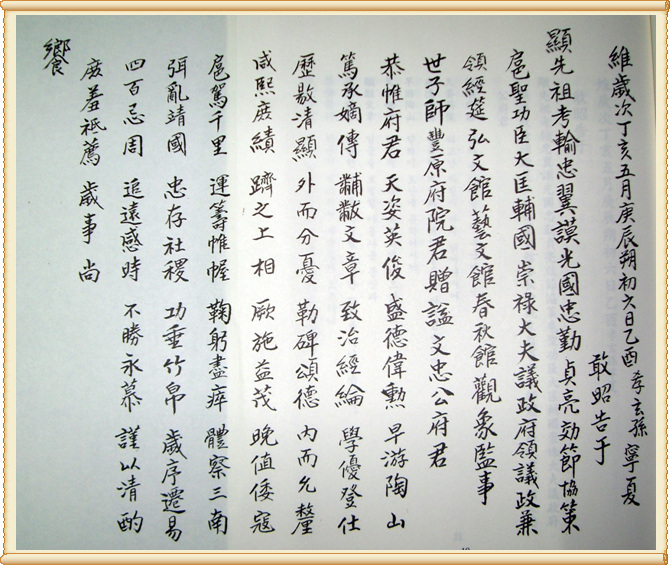 維歲次丁亥五月庚辰朔初六日乙酉 孝玄孫 寧夏
敢昭告于
顯先祖考輸忠翼謨光國忠勤 貞亮効節協策
扈聖功臣大匡輔國 崇祿大夫議政府領議政兼
領經筵弘文館藝文館春秋館觀象監事
世子師豐原府院君贈諡文忠公府君
恭惟府君 天姿英俊 盛德偉勳 早游陶山
篤承嫡傳 黼黻文章 致治經綸 學優登仕
歷敭清顯 外而分憂 勒碑頌德 內而允釐
咸熙庶績 躋之上相 厥施益茂 晚值倭寇
扈駕千里 運籌帷幄 鞠躬盡瘁 體察三南
弭亂靖國 忠存社稷 功垂竹帛 歲序遷易
四百忌周 追遠感時 不勝永慕 謹以清酌
庶羞祗薦 歲事 尚
饗